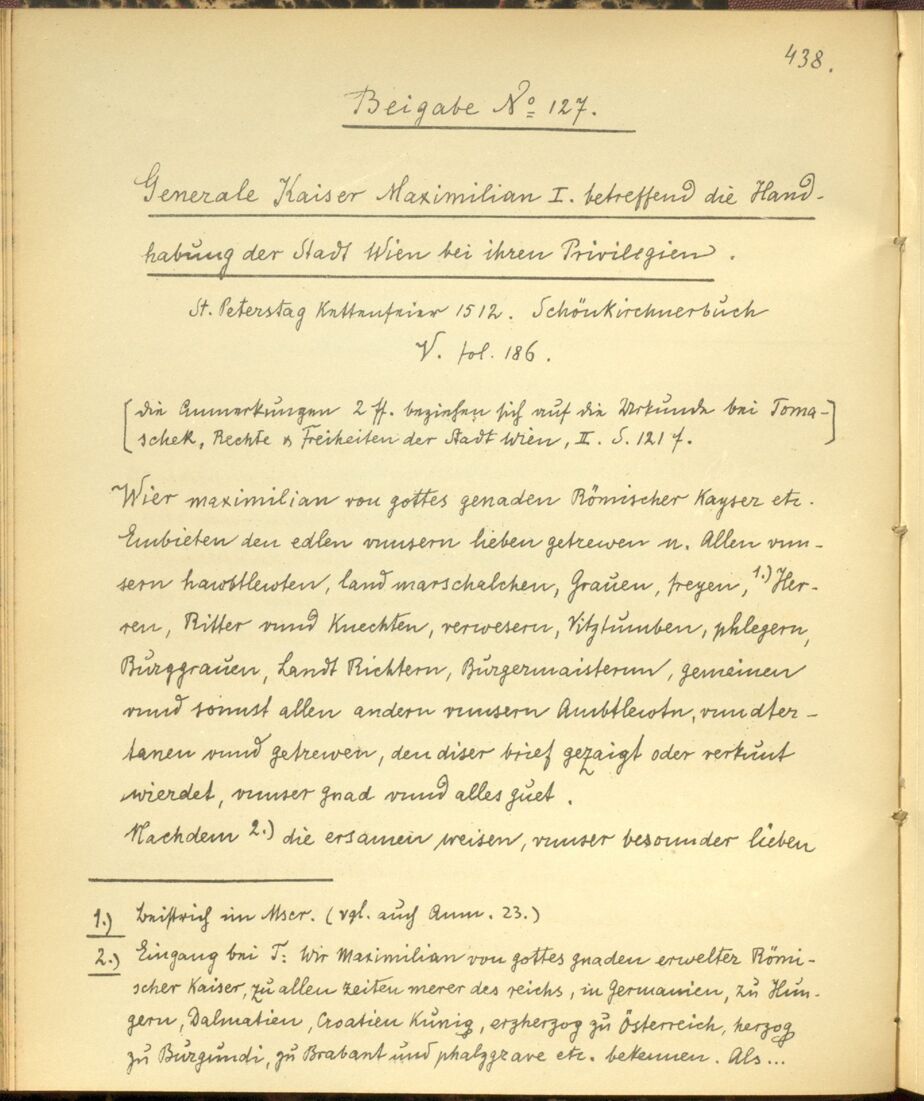 438.
Beigabe No 127.
Generale Kaiser Maximilian I. betreffend die Hand-
habung der Stadt Wien bei ihren Privilegien.
St. Peterstag Kettenfeier 1512. Schönkirchnerbuch
V. fol. 186.
[die Anmerkungen 2 ff. beziehen sich auf die Urkunde bei Toma-
schek, Rechte & Freiheiten der Stadt Wien, II. S. 121 f.]
Wier maximilian von gottes genaden Römischer Kayser etc.
Embieten den edlen vnnsern lieben getrewen u. Allen vnn-
sern hawbtlewten, land marschalchen, Grauen, freyen, 1.) Her-
ren, Ritter vnnd Knechten, verwesern, Vitztumben, phlegern,
Burggrauen, Landt Richtern, Burgermaisternn, gemeinen
vnnd sonnst allen andern vnnsern Ambtlewtn, vnndter-
tanen vnnd getrewen, den diser brief gezaigt oder verkunt
wierdet, vnnser gnad vnnd alles guet.
Nachdem 2.) die ersamen weisen, vnnser besonnder lieben
1.) Beistrich im Mscr. (vgl. auch Anm. 23.)
2.) Eingang bei T: Wir Maximilian von gottes gnaden erwelter Römi-
scher Kaiser, zu allen zeiten merer des reichs, in Germanien, zu Hun-
gern, Dalmatien, Croatien Kunig, erzherzog zu Österreich, herzog
zu Burgundi, zu Brabant und phalzgrave etc. bekennen. Als...